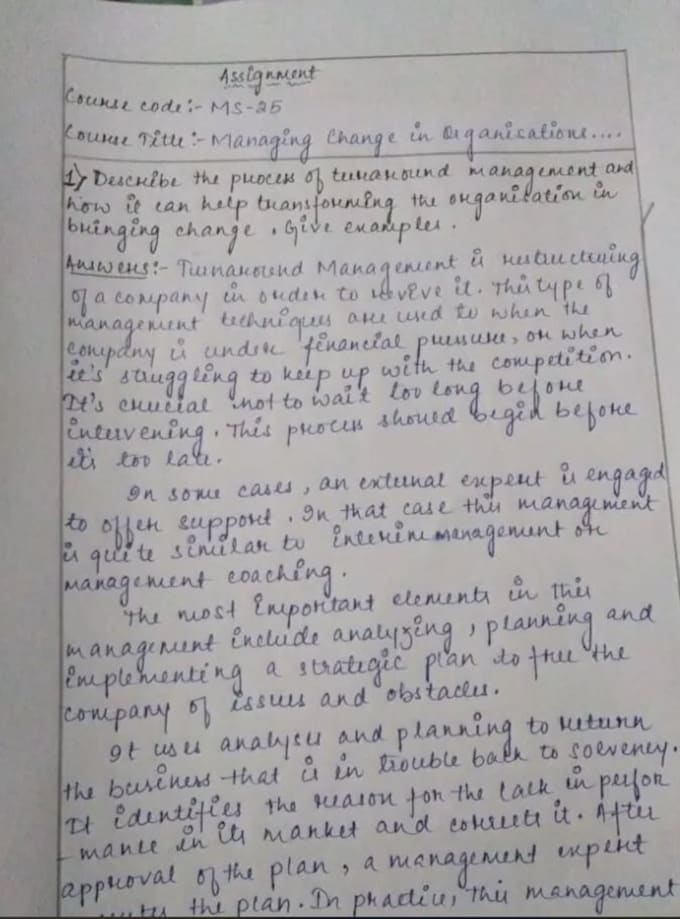 Assignment
Course code:- MS-25
Course Title:- Managing Change in Organisations....
1) Describe the process of turnaround management and
how it can help transforming the organisation in
bringing change. Give examples.
Answers:- Turnaround Management is restructuring
of a company in order to revive it. This type of
management techniques are used to when the
company is under financial pressure, or when
it's struggling to keep up with the competition.
It's crucial not to wait too long before
intervening. This process should begin before
it's too late.
In some cases, an external expert is engaged
to offer support. In that case this management
is quite similar to interim management or
management coaching.
The most important elements in this
management include analyzing, planning and
implementing a strategic plan to free the
company of issues and obstacles.
It uses analysis and planning to return
the business that is in trouble back to solvency.
It identifies the reason for the lack in perfor
-mance in its market and corrects it. After
approval of the plan, a management expert
the plan. In practice, this management